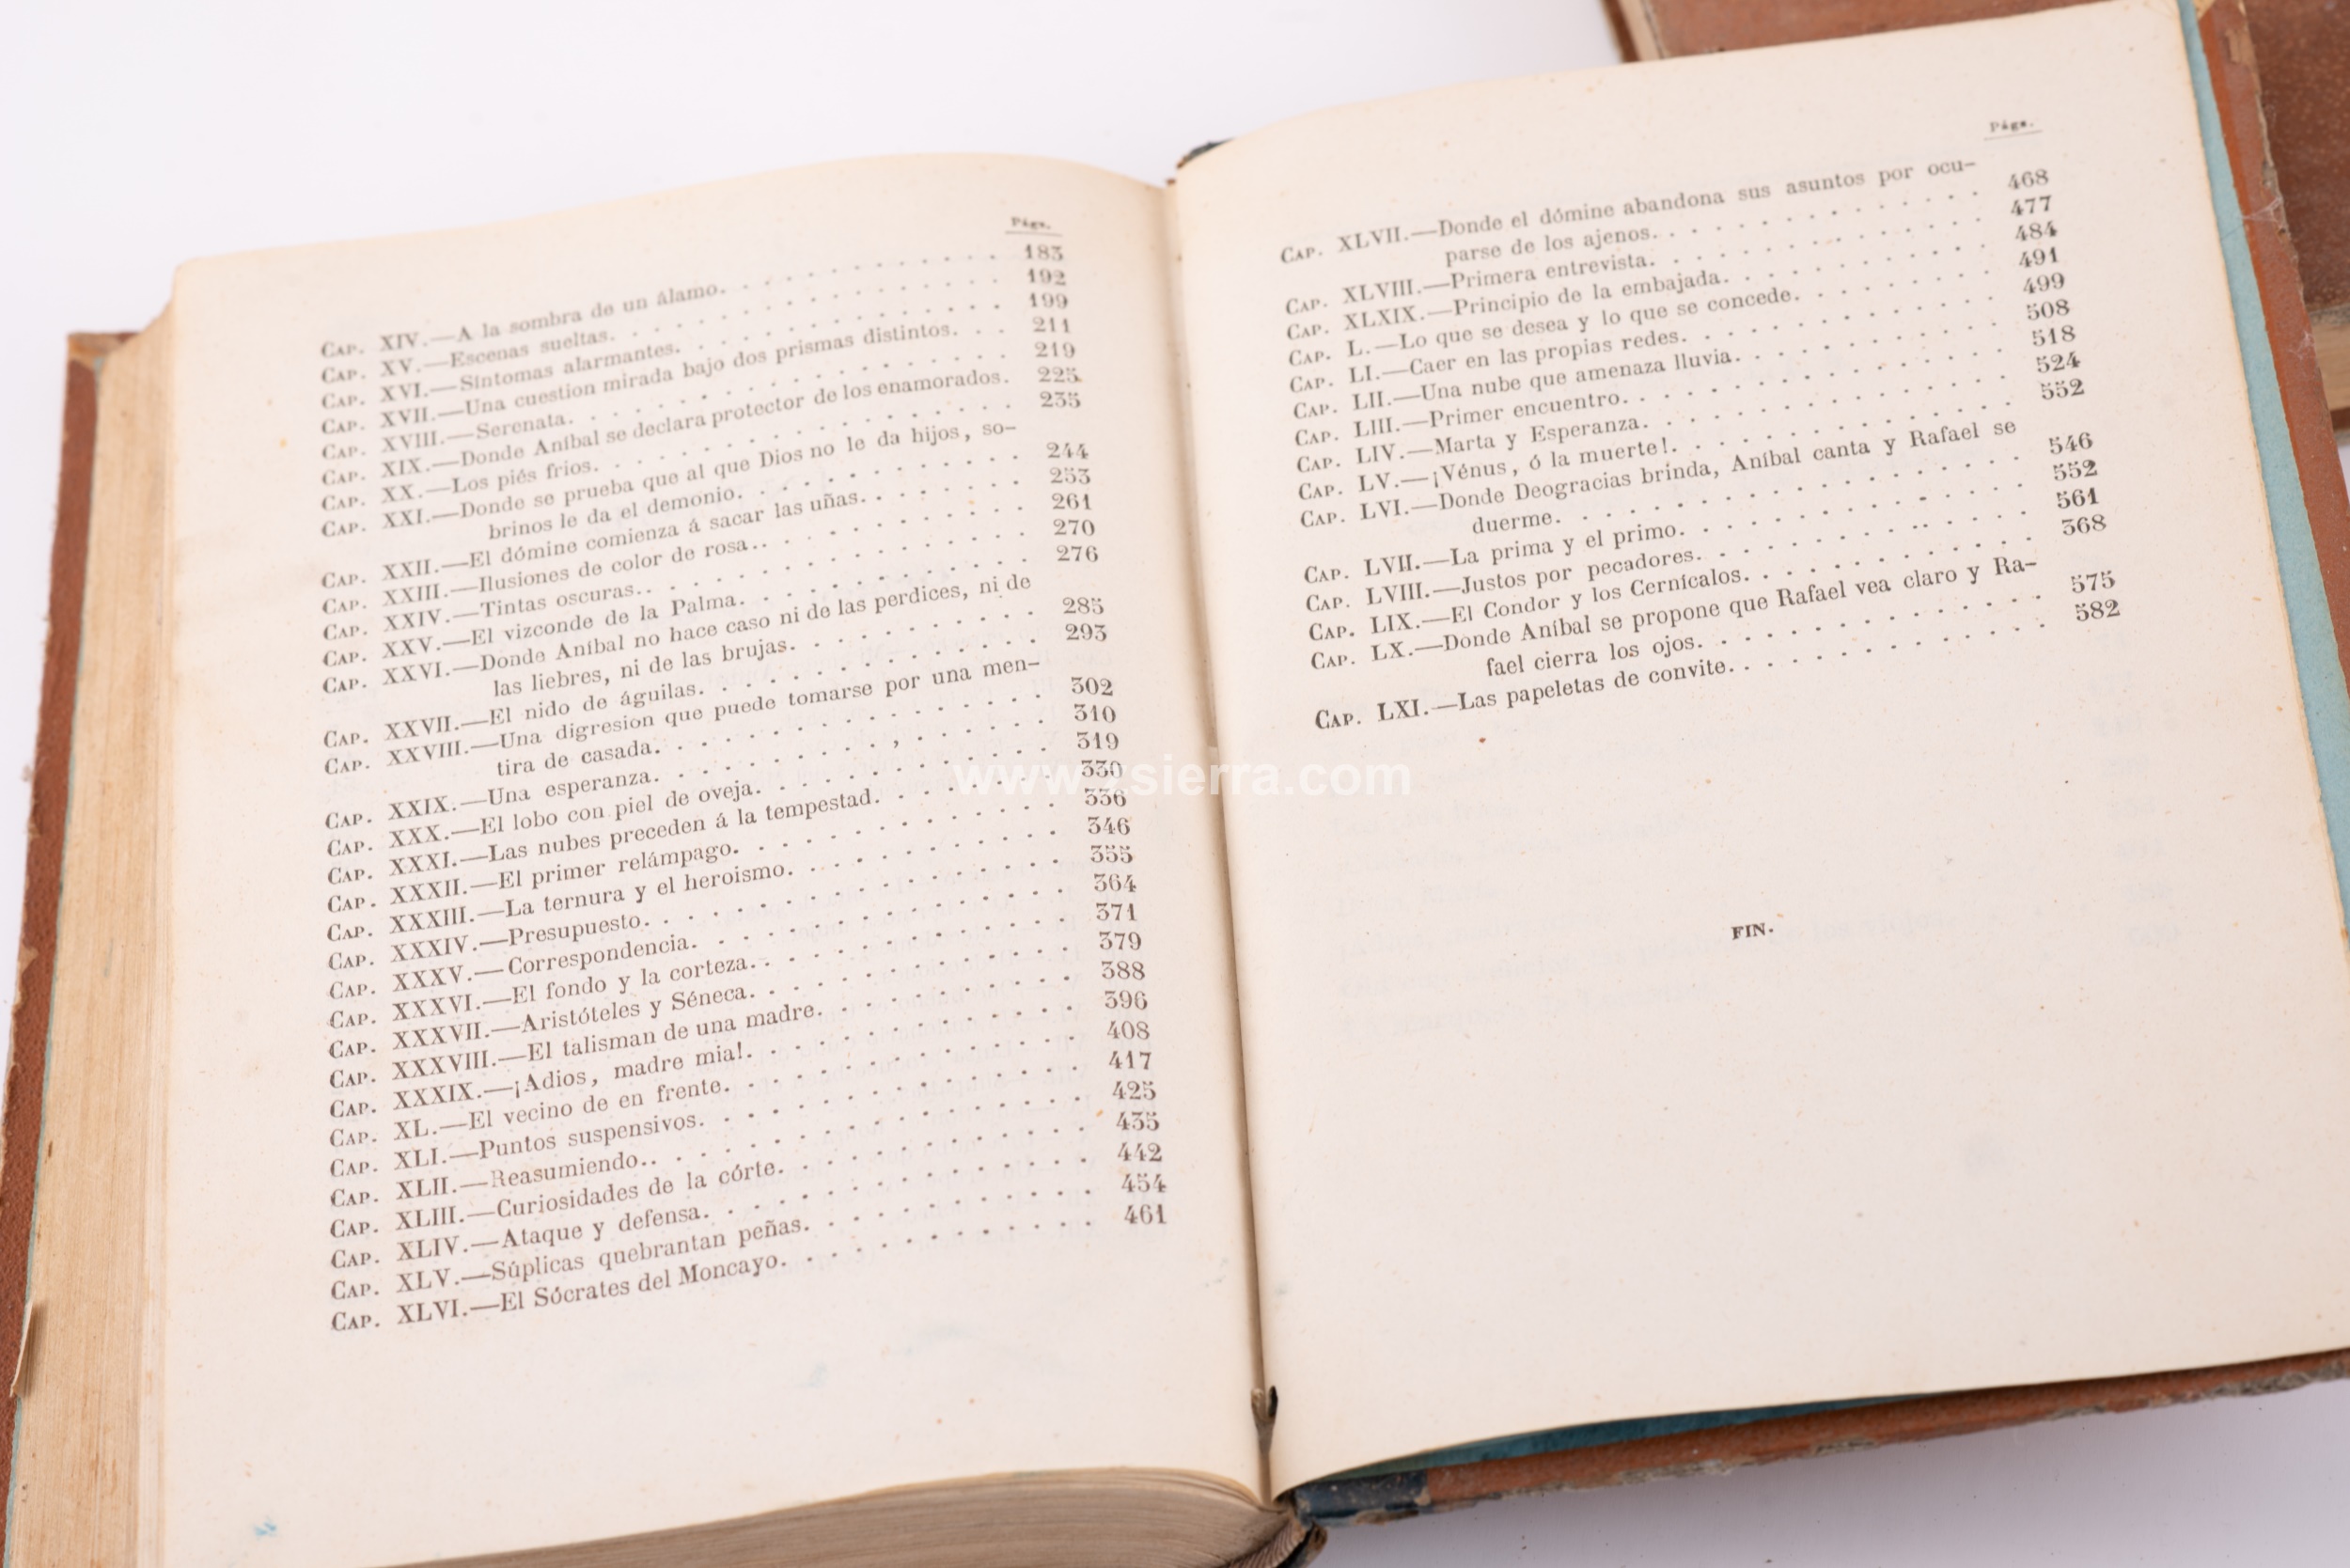 Págs.
CAP. XIV.—A la sombra de un álamo. . . . . . . . . . . . 183
CAP. XV.—Escenas sueltas. . . . . . . . . . . . . . . . 192
CAP. XVI.—Síntomas alarmantes. . . . . . . . . . . . . . 199
CAP. XVII.—Una cuestion mirada bajo dos prismas distintos. . . 211
CAP. XVIII.—Serenata. . . . . . . . . . . . . . . . . 219
CAP. XIX.—Donde Aníbal se declara protector de los enamorados. 225
CAP. XX.—Los piés frios. . . . . . . . . . . . . . . . 235
CAP. XXI.—Donde se prueba que al que Dios no le da hijos, so-
brinos le da el demonio. . . . . . . . . . . . 244
CAP. XXII.—El dómine comienza á sacar las uñas. . . . . . . 253
CAP. XXIII.—Ilusiones de color de rosa. . . . . . . . . . . 261
CAP. XXIV.—Tintas oscuras. . . . . . . . . . . . . . . 270
CAP. XXV.—El vizconde de la Palma. . . . . . . . . . . . 276
CAP. XXVI.—Donde Aníbal no hace caso ni de las perdices, ni de
las liebres, ni de las brujas. . . . . . . . . . 285
CAP. XXVII.—El nido de águilas. . . . . . . . . . . . . . 293
CAP. XXVIII.—Una digresion que puede tomarse por una men-
tira de casada. . . . . . . . . . . . . . . 302
CAP. XXIX.—Una esperanza. . . . . . . . . . . . . . . 310
CAP. XXX.—El lobo con piel de oveja. . . . . . . . . . . . 319
CAP. XXXI.—Las nubes preceden á la tempestad. . . . . . . 330
CAP. XXXII.—El primer relámpago. . . . . . . . . . . . . 336
CAP. XXXIII.—La ternura y el heroismo. . . . . . . . . . . 346
CAP. XXXIV.—Presupuesto. . . . . . . . . . . . . . . . 355
CAP. XXXV.—Correspondencia. . . . . . . . . . . . . . . 364
CAP. XXXVI.—El fondo y la corteza. . . . . . . . . . . . . 371
CAP. XXXVII.—Aristóteles y Séneca. . . . . . . . . . . . . 379
CAP. XXXVIII.—El talisman de una madre. . . . . . . . . . . 388
CAP. XXXIX.—¡Adios, madre mia!. . . . . . . . . . . . . 396
CAP. XL.—El vecino de en frente. . . . . . . . . . . . . 408
CAP. XLI.—Puntos suspensivos. . . . . . . . . . . . . . 417
CAP. XLII.—Reasumiendo. . . . . . . . . . . . . . . . 425
CAP. XLIII.—Curiosidades de la córte. . . . . . . . . . . . 435
CAP. XLIV.—Ataque y defensa. . . . . . . . . . . . . . 442
CAP. XLV.—Súplicas quebrantan peñas. . . . . . . . . . . 454
CAP. XLVI.—El Sócrates del Moncayo. . . . . . . . . . . . 461
Págs.
CAP. XLVII.—Donde el dómine abandona sus asuntos por ocu-
parse de los ajenos. . . . . . . . . . . . . 468
CAP. XLVIII.—Primera entrevista. . . . . . . . . . . . . . 477
CAP. XLXIX.—Principio de la embajada. . . . . . . . . . . 484
CAP. L.—Lo que se desea y lo que se concede. . . . . . . . 491
CAP. LI.—Caer en las propias redes. . . . . . . . . . . . 499
CAP. LII.—Una nube que amenaza lluvia. . . . . . . . . . 508
CAP. LIII.—Primer encuentro. . . . . . . . . . . . . . . 518
CAP. LIV.—Marta y Esperanza. . . . . . . . . . . . . . 524
CAP. LV.—¡Vénus, ó la muerte!. . . . . . . . . . . . . 552
CAP. LVI.—Donde Deogracias brinda, Aníbal canta y Rafael se
duerme. . . . . . . . . . . . . . . . . 546
CAP. LVII.—La prima y el primo. . . . . . . . . . . . . 552
CAP. LVIII.—Justos por pecadores. . . . . . . . . . . . . 561
CAP. LIX.—El Condor y los Cernícalos. . . . . . . . . . . 368
CAP. LX.—Donde Aníbal se propone que Rafael vea claro y Ra-
fael cierra los ojos. . . . . . . . . . . . . 575
CAP. LXI.—Las papeletas de convite. . . . . . . . . . . . 582
FIN.
www.zsierra.com